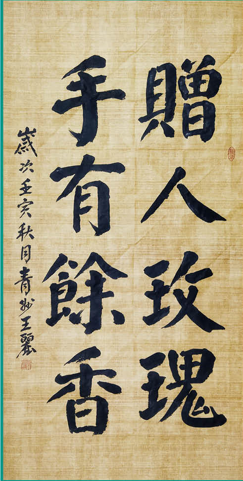 贈人玫瑰
手有餘香
歲次壬寅秋月青州王麗